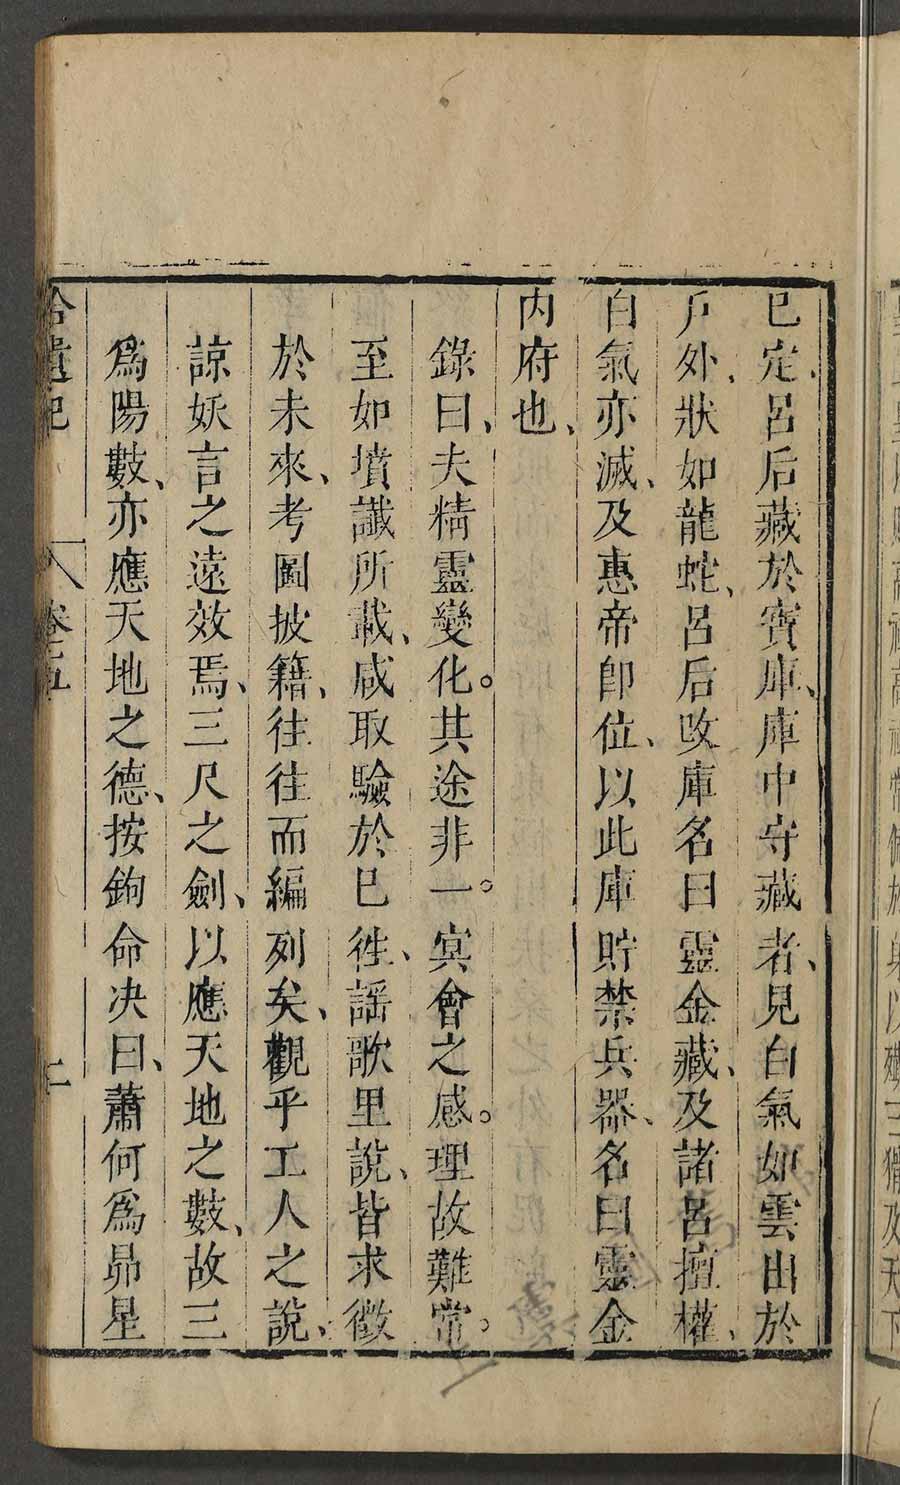 已定、呂后藏於寶庫、庫中守藏者、見白氣如雲出於
戶外、狀如龍蛇、呂后改庫名曰靈金藏、及諸呂擅權、
白氣亦滅、及惠帝即位、以此庫貯禁兵器、名曰靈金
內府也、
錄曰、夫精靈變化。其途非一。㝠會之感。理故難常。
至如墳讖所載、咸取驗於已徃、謡歌里說、皆求徵
於未來、考圖披籍、往往而編列矣、觀乎工人之說、
諒妖言之遠效焉、三尺之劍、以應天地之數、故三
爲陽數、亦應天地之德、按鉤命決曰、蕭何爲昴星
拾遺記 卷五